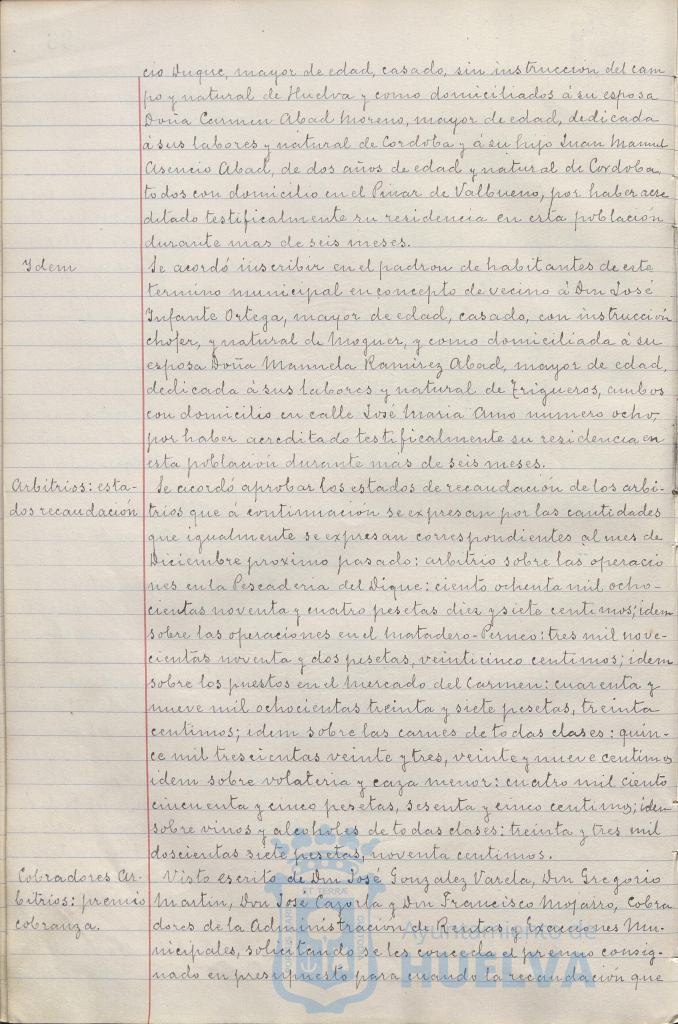 cio Duque, mayor de edad, casado, sin instruccion del cam
po y natural de Huelva y como domiciliados á su esposa
Doña Carmen Abad Moreno, mayor de edad, dedicada
á sus labores y natural de Cordoba y á su hijo Juan Manuel
Asencio Abad, de dos años de edad y natural de Cordoba,
todos con domicilio en el Pinar de Valbueno, por haber acre
ditado testificalmente su residencia en esta población
durante mas de seis meses.
Idem
Se acordó inscribir en el padron de habitantes de este
termino municipal en concepto de vecino á Don José
Infante Ortega, mayor de edad, casado, con instrucción
chofer, y natural de Moguer, y como domiciliada á su
esposa Doña Manuela Ramirez Abad, mayor de edad,
dedicada á sus labores y natural de Trigueros, ambos
con domicilio en calle José Maria Amo numero ocho,
por haber acreditado testificalmente su residencia en
esta población durante mas de seis meses.
Arbitrios: esta-
dos recaudación
Se acordó aprobar los estados de recaudación de los arbi-
trios que á continuación se expresan por las cantidades
que igualmente se expresan correspondientes al mes de
Diciembre proximo pasado: arbitrio sobre las operacio
nes en la Pescaderia del Dique: ciento ochenta mil ocho-
cientas noventa y cuatro pesetas diez y siete centimos; idem
sobre las operaciones en el matadero-Perneo: tres mil nove-
cientas noventa y dos pesetas, veinticinco centimos; idem
sobre los puestos en el Mercado del Carmen: cuarenta y
nueve mil ochocientas treinta y siete pesetas, treinta
centimos; idem sobre las carnes de todas clases: quin-
ce mil trescientas veinte y tres, veinte y nueve centimos
idem sobre volateria y caza menor: cuatro mil ciento
cincuenta y cinco pesetas, sesenta y cinco centimos; idem
sobre vinos y alcoholes de todas clases: treinta y tres mil
doscientas siete pesetas, noventa centimos.
Cobradores Ar-
bitrios: premio
cobranza.
Visto escrito de Don José Gonzalez Varela, Don Gregorio
Martin, Don José Cazorla y Don Francisco Mojarro, Cobra
dores de la Administración de Rentas y Exacciones Mu-
nicipales, solicitando se les conceda el premio consig-
nado en presupuesto para cuando la recaudación que
Ayuntamiento de
HUELVA